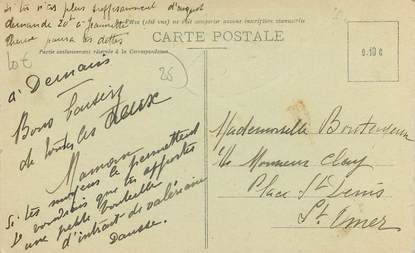 si tu n'as plus suffisamment d'argent
demande 20f à Jeannette
payera les dettes
Pièce (côté vue) ne doit comporter aucune inscription manuscrite
CARTE POSTALE
Partie exclusivement réservée à la Correspondance.
28
0.10 c
à Demain
Bons baisers
de toutes les deux
Maman
Si tes moyens le permettent
je voudrais que tu apportes
une petite bouteille
d'intrait de valériane
Dausse.
Mademoiselle
Monsieur Clay
Place St Denis
St Omer